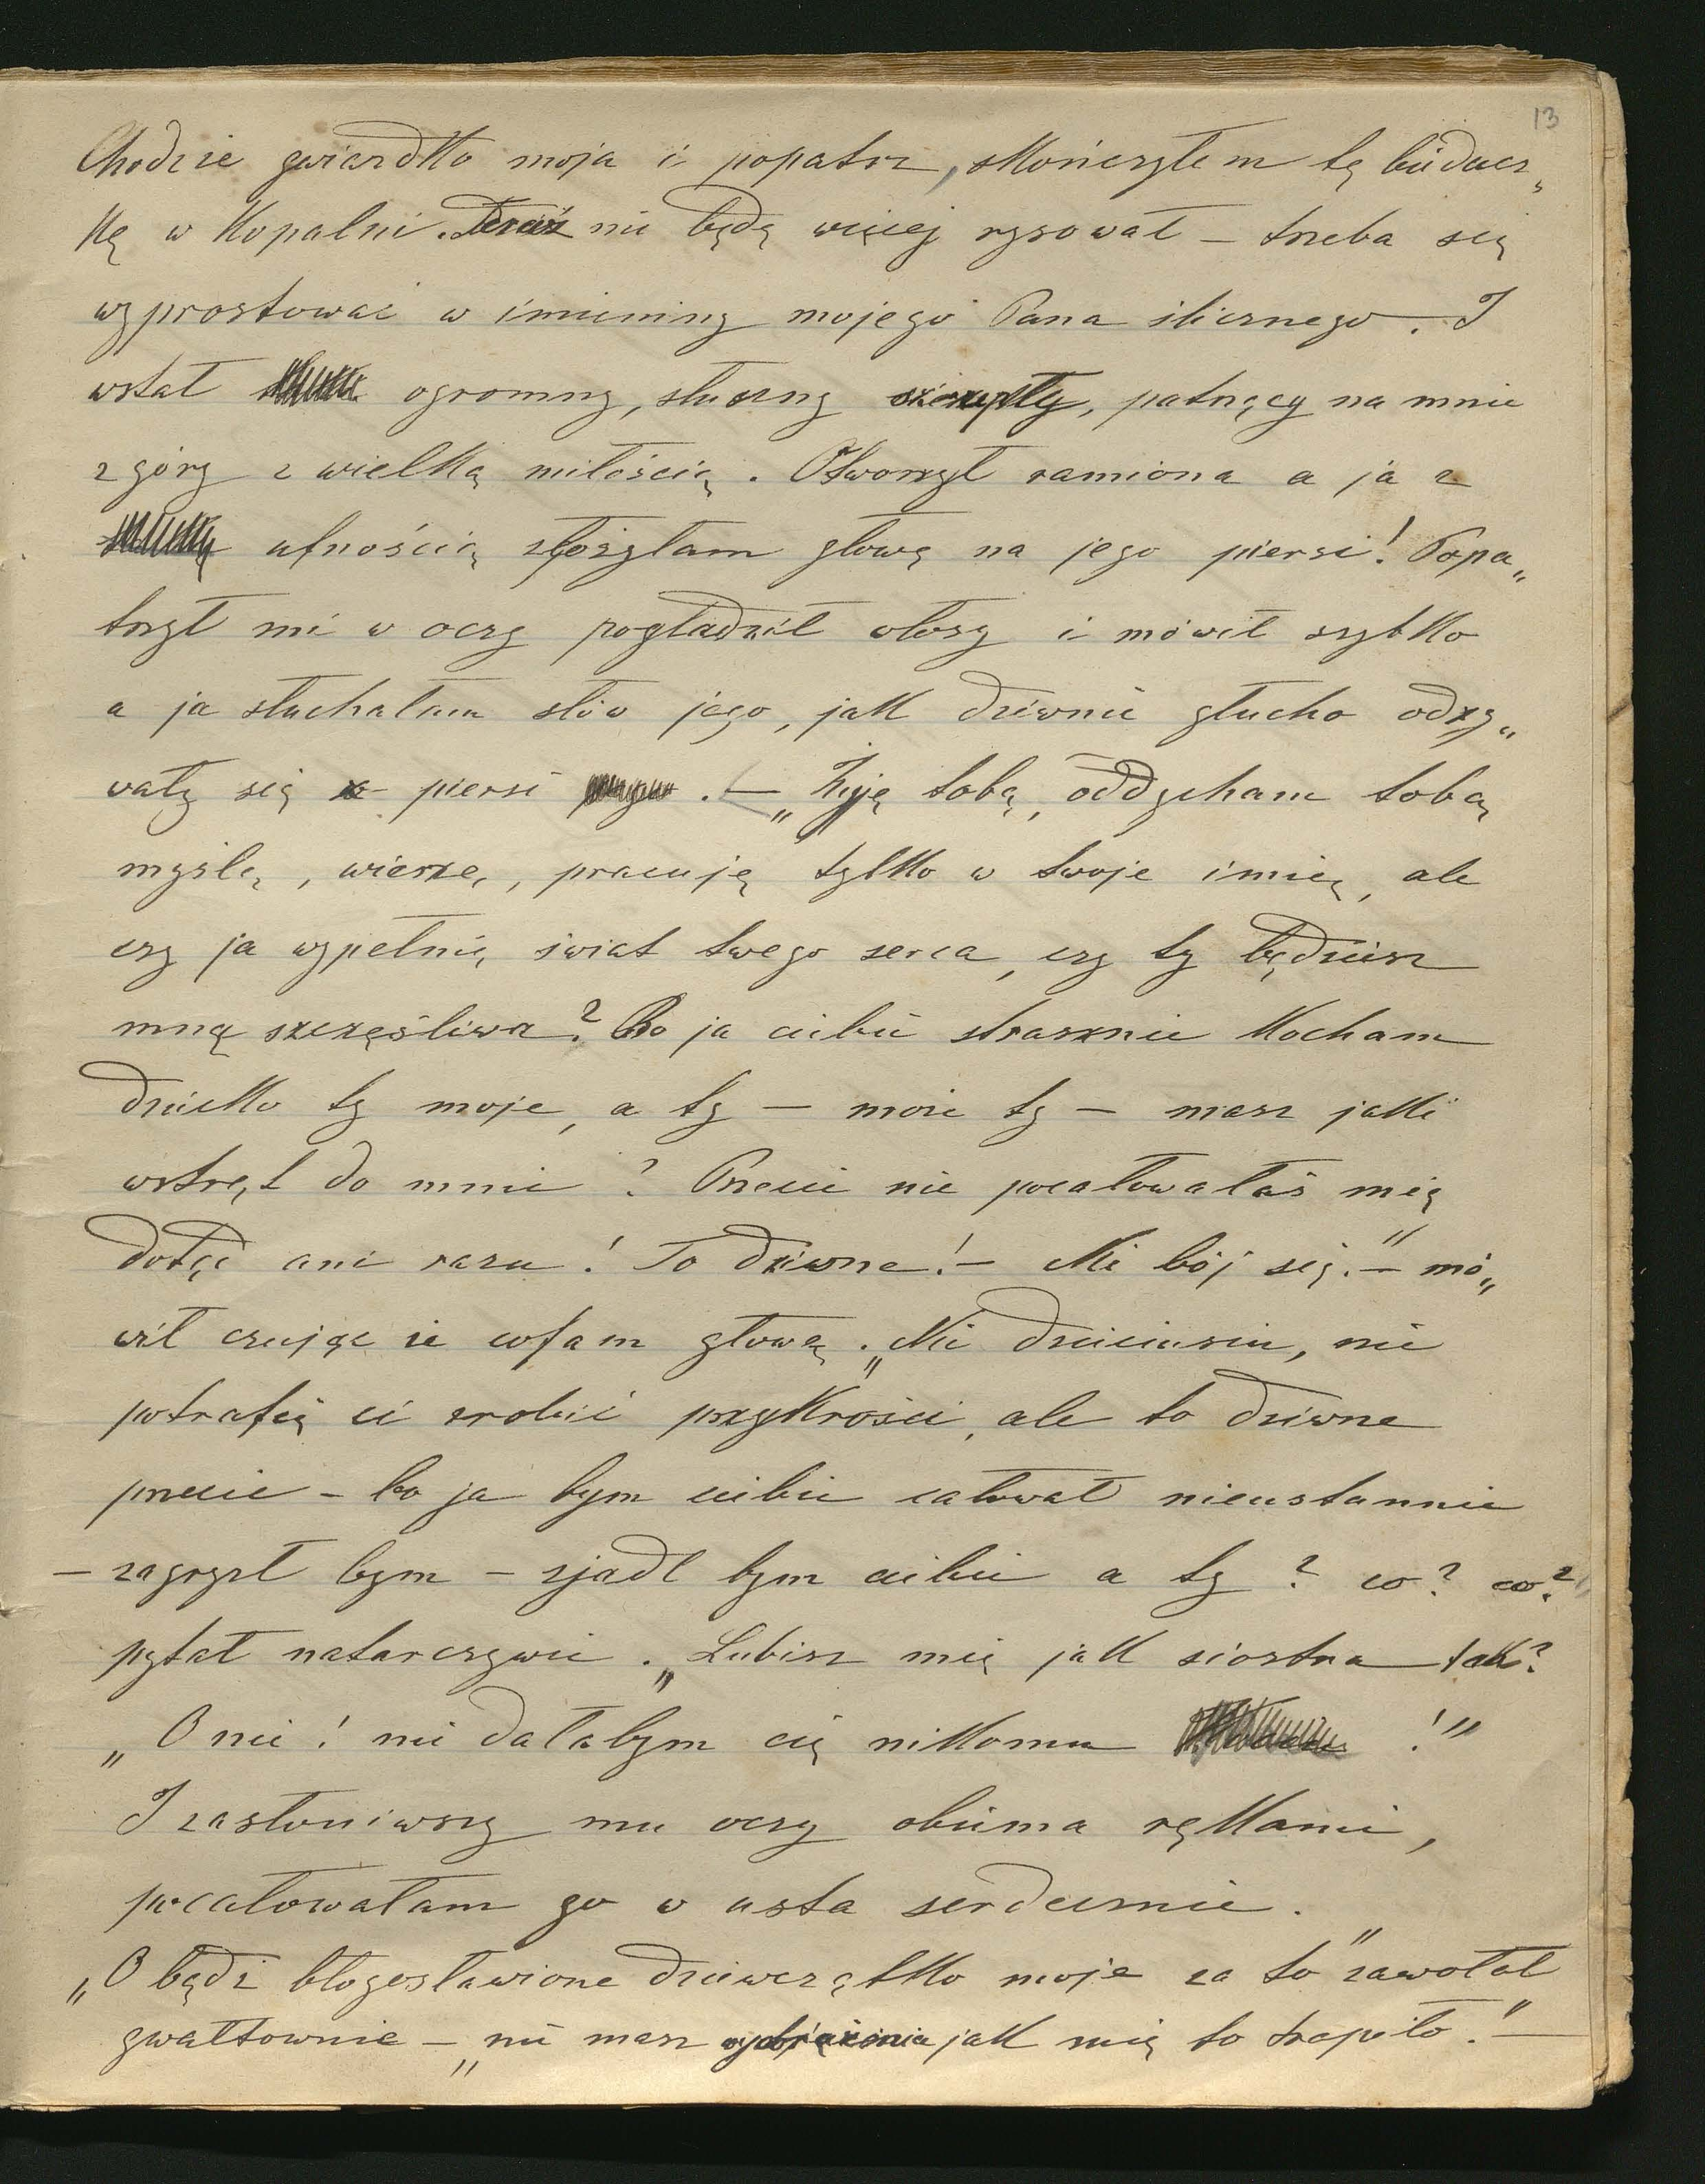 13
Chodzie gwiazdko moja i popatrz, skończyłem tę biédacz„
kę w kopalni. Teraz nie będę więcej rysował – trzeba się
wyprostować w imieniny mojego Pana ślicznego. I
wstał ogromny, śliczny szczupły, patrzący na mnie
z góry z wielką miłością. Otworzył ramiona a ja z
ufnością złożyłam głowę na jego piersi! Popa„
trzył mi w oczy pogładził włosy i mówił szybko
a ja słuchałam słów jego, jak dziwnie głucho odzy„
wały się w piersi . – „Żyję tobą, oddycham tobą
myślę, wierzę, pracuję tylko w twoje imię, ale
czy ja wypełnię świat twego serca, czy ty będziesz
mną szczęśliwa? Bo ja ciebie strasznie kocham
dziecko ty moje, a ty – może ty – masz jakiś
wstręt do mnie? Przecie nie pocałowałaś mię
dotąd ani razu! To dziwne! – Nie bój się." – mó„
wił czując że cofam głowę. „Nie dzieciusiu, nie
potrafię ci zrobić przykrości, ale to dziwne
przecie – bo ja bym ciebie całował nieustannie
– zagryzł bym – zjadł bym ciebie a ty? co? co?
pytał natarczywie. „Lubisz mię jak siostra tak?
„O nie! nie dałabym cię nikomu !"
I zasłoniwszy mu oczy obiema rękami,
pocałowałam go w usta serdecznie.
„O bądź błogosławione dziewczątko moje za to" zawołał
gwałtownie – „nie masz wyobrażenia jak mię to trapiło." –